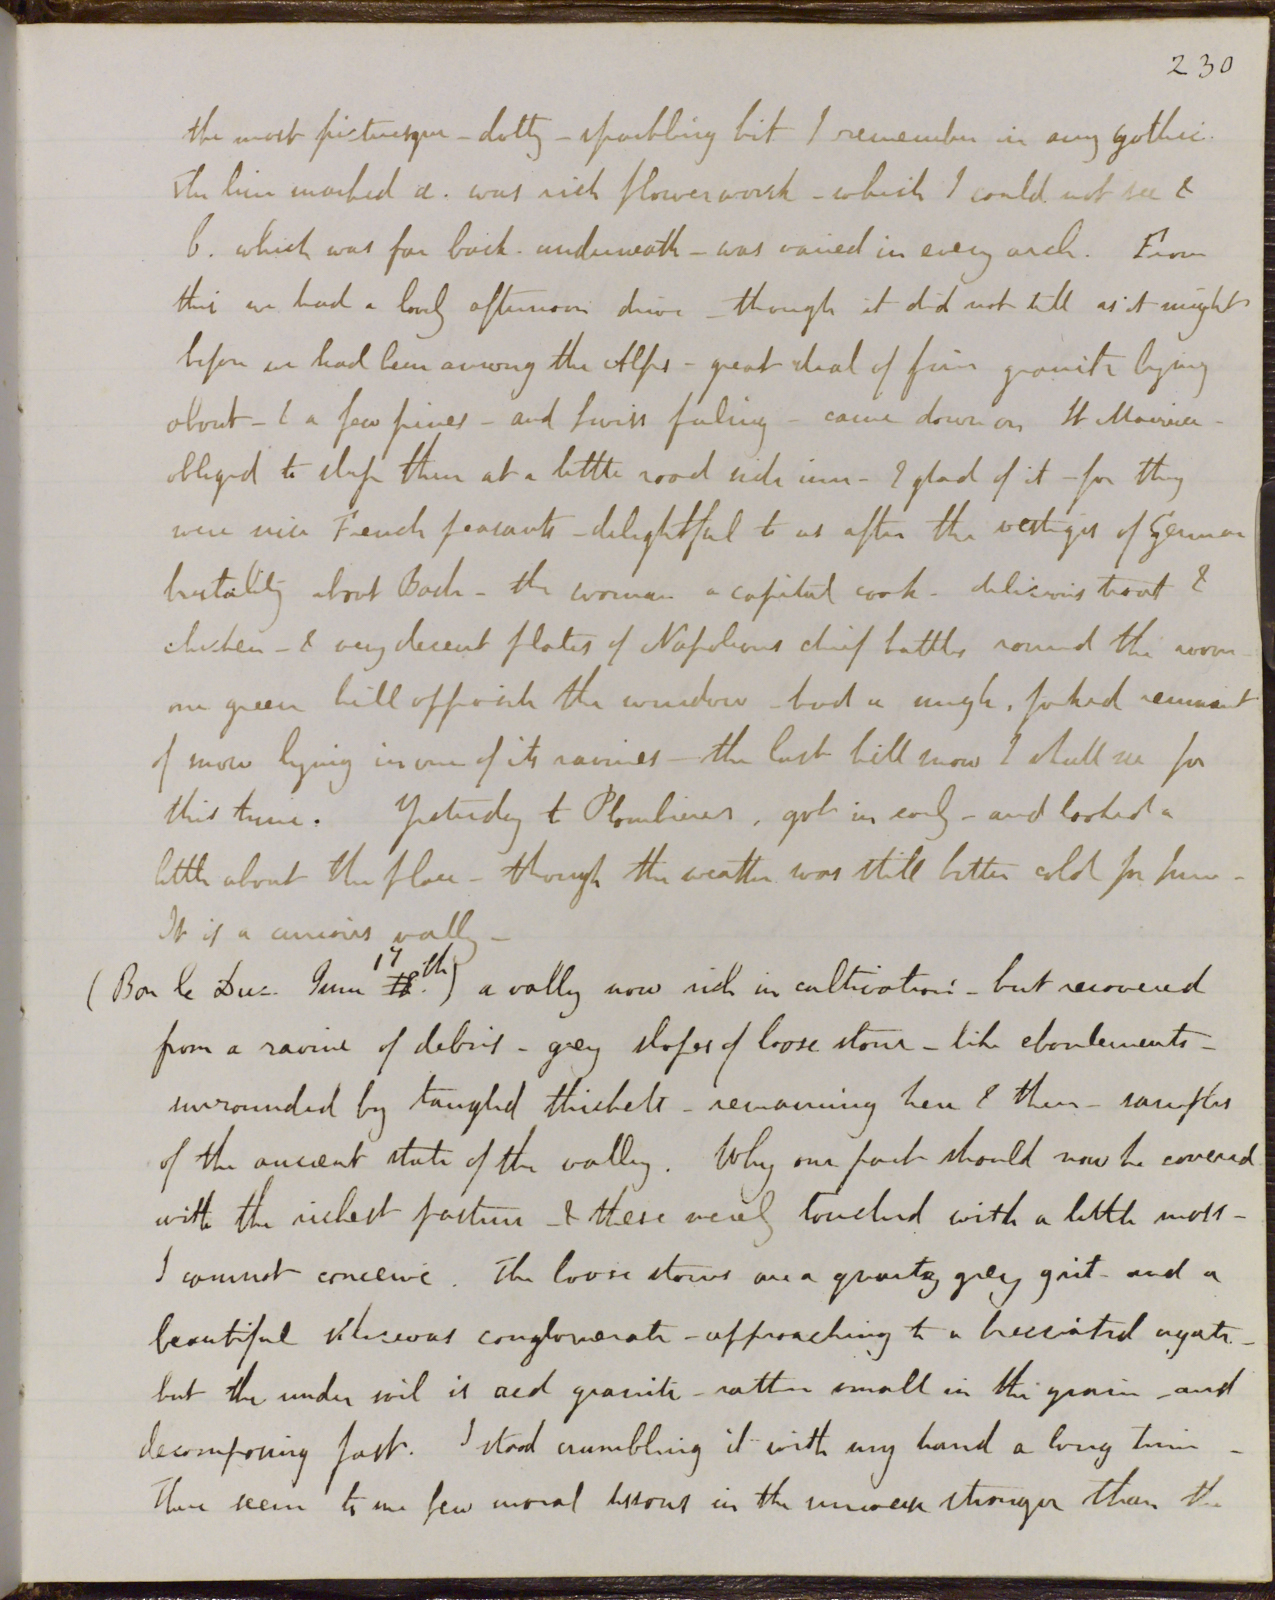 230
the most picturesque - dotty - sparkling bit I remember in any Gothic.
The line marked a. was rich flowerwork - which I could not see &
b. which was far back underneath - was varied in every arch. From
this we had a lovely afternoon drive - though it did not tell as it might
before we had been among the Alps - great deal of fine granite lying
about - & a few pines - and Swiss feeling - came down on St Maurice -
obliged to sleep there at a little road side inn - & glad of it - for they
were nice French peasants - delightful to us after the vestiges of German
brutality about Basle - the woman a capital cook - delicious trout &
chicken - & very decent plates of Napoleons chief battles round the room -
one green hill opposite the window - had a single, forked remnant
of snow lying in one of its ravines - the last hill snow I shall see for
this time. Yesterday to Plombieres, got in early - and looked a
little about the place - though the weather was still bitter cold for June -
It is a curious vally -
(Bar le Duc. June 17 18.th) a vally now rich in cultivation - but recovered
from a ravine of debris - grey slopes of loose stone - like eboulements -
surrounded by tangled thickets - remaining here & there - samples
of the ancient state of the valley. Why one part should now be covered
with the richest pasture - & these merely touched with a little moss -
I cannot conceive. The loose stones are a quartzy grey grit - and a
beautiful siliceous conglomerate - approaching to a brecciated agate -
but the under soil is red granite - rather small in the grain - and
decomposing fast. I stood crumbling it with my hand a long time -
There seem to me few moral lessons in the universe stronger than the